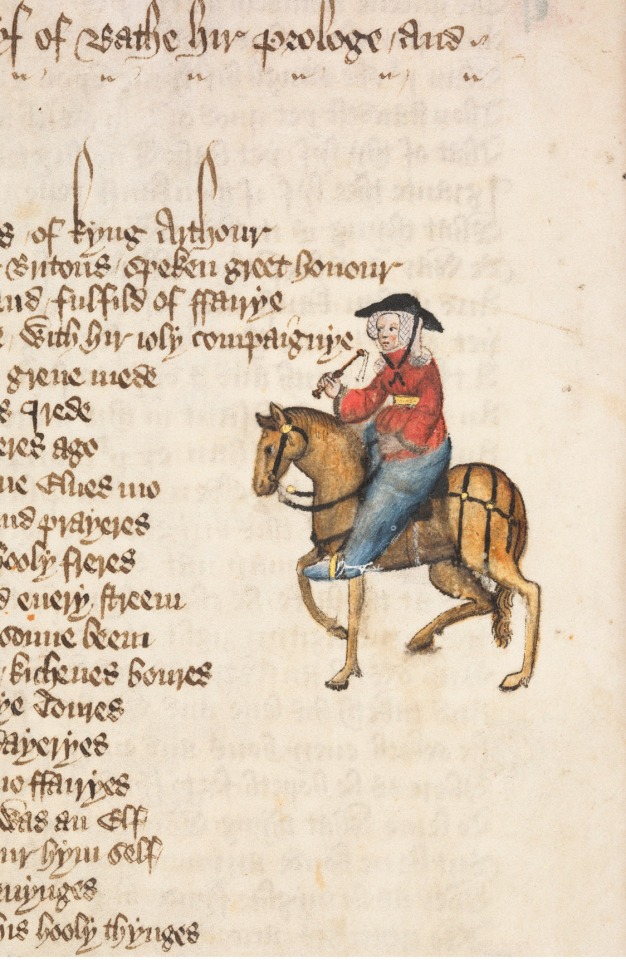 yf of Bathe hir prologe and
s of kyng Arthour
Britons speken greet honour
and fulfild of ffairye
e with hir ioly compaignye
grene mede
s I rede
eres ago
ne Elues mo
and prayeres
hooly freres
d euery streem
sonne beem
kichenes boures
ye toures
dayeryes
no ffairyes
was an Elf
ur hym self
enynges
his hooly thynges